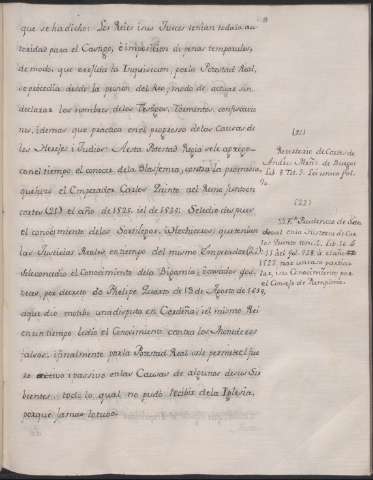 que se ha dicho: Los Reies i sus Jueces tenian toda la au
toridad para el Castigo, è imposicion de penas temporales,
de modo, que erexida la Inquisicion, por la Potestad Real,
se procedia desde la prision del Reo, modo de actuar sin
declarar los nombres, delos Testigos, Tormentos, confiscacio
nes, i demas que practica en el progresso de las Causas de
los Herejes i Judios. A esta Potestad Regia se le agrego
con el tiempo el conocer de la Blasfemia, contra la promesa,
que hizo el Emperador Carlos Quinto al Reino junto en
cortes (21) el año de 1525. i el de 1534: Se le dio despues
el conocimiento de los Sortilegos, i Hechiceros; que tenian
las Justicias Reales, en tiempo del mismo Emperador (22)
Se le concedio el Conocimiento de la Bigamia; i
por decreto de Phelipe Quarto de 18 de Agosto de
que dio motibo una disputa en Cerdeña; i el mismo Rei
en un tiempo le dio el Conocimiento contra los Monederos
falsos: i finalmente por la Potestad Real se le permite el fue
ro activo i passivo en las Causas de algunos de sus Sir
bientes; todo lo qual no pudo recibir de la Iglesia,
porque jamas lo tubo.
(21)
de Cortes de
Burgos
Lib. 8 Tit. 5. fol.
(22)
Prudencio de San
doval en la Historia de Car
los Quinto tom. 1. Lib. 16 §
fol. 828. el año
1527.
su Conocimiento por
el Consejo de Pamplona.